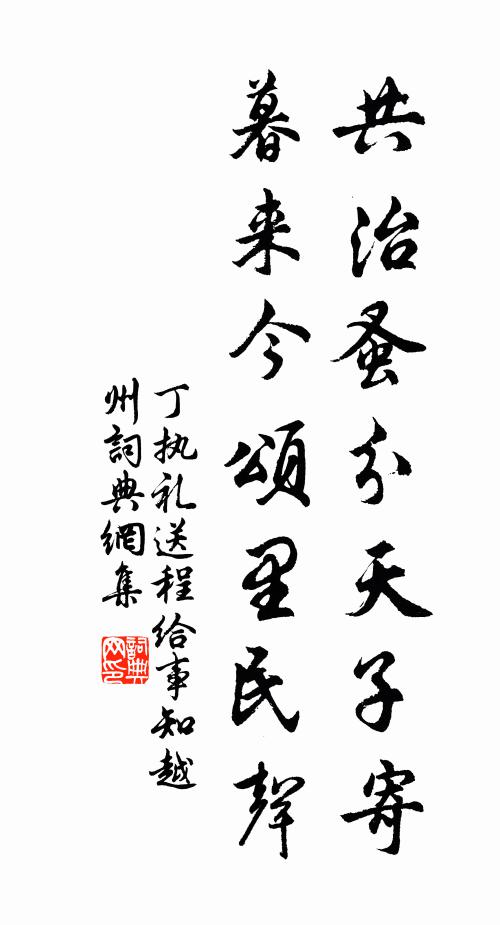 共治蚤分天子寄
暮来今頌里民聲
丁执礼送程给事知越
州詞典網集
詞典
网印